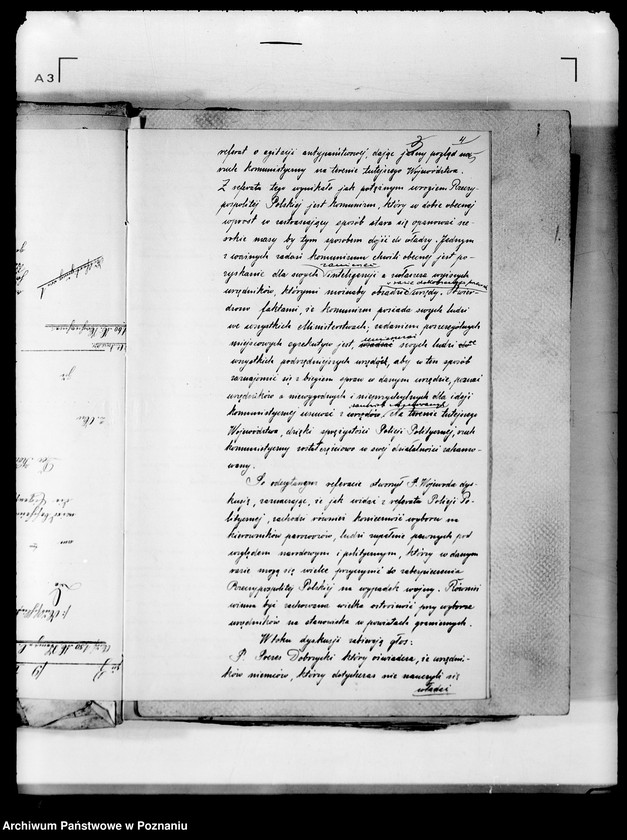 A3
3 4
referat o agitacji antypaństwowej, dając jasny pogląd na
ruch komunistyczny na terenie tutejszego Województwa.
Z referatu tego wynikało jak potężnym wrogiem Rzeczy-
pospolitej Polskiej jest komunizm, który w dobie obecnej
wprost w zastraszający sposób stara się opanować sze-
rokie masy by tym sposobem dojść do władzy. Jednym
z ważnych zadań komunizmu chwili obecnej jest po-
zyskanie dla swych zamierzeń inteligencji a zwłaszcza wyższych
urzędników, którymi możnaby obsadzić urzędy. Stwier-
dzono faktami, że komunizm posiada swych ludzi
we wszystkich Ministerstwach; zadaniem poszczególnych
miejscowych egzekutyw jest, swych ludzi
wszystkich podrzędniejszych urzędach, aby w ten sposób
zaznajomić się z biegiem spraw w danym urzędzie, poznać
urzędników a niewygodnych i nieprzychylnych dla idei
komunistycznej usunąć z urzędów. Na terenie tutejszego
Województwa, dzięki sprężystości Policji Politycznej, ruch
komunistyczny został częściowo w swej działalności zahamo-
wany.
Po odczytanym referacie otworzył P. Wojewoda dys-
kusję, zaznaczając, że jak widać z referatu Policji Po-
litycznej, zachodzi również konieczność wyboru na
kierowników parowozów, ludzi zupełnie pewnych pod
względem narodowym i politycznym, którzy w danym
razie mogą się wielce przyczynić do zabezpieczenia
Rzeczypospolitej Polskiej na wypadek wojny. Również
winna być zachowana wielka ostrożność przy wyborze
urzędników na stanowiska w powiatach granicznych.
W toku dyskusji zabierają głos:
P. Prezes Dobrzycki który oświadcza, że urzędni-
ków niemców, którzy dotychczas nie nauczyli się
władać
Archiwum Państwowe w Poznaniu